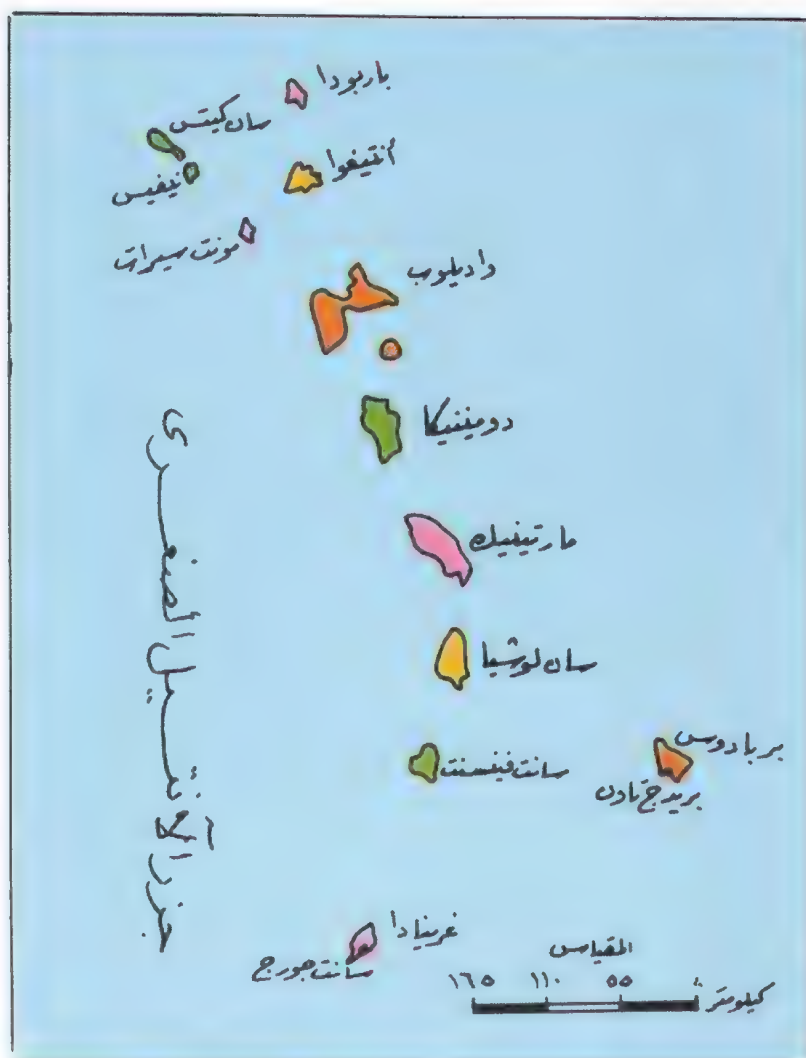 باربودا
سان كيتس
أنتيغوا
نيفيس
مونت سيرات
واديلوب
دومينيكا
مارتينيك
سان لوشيا
بربادوس
سانت فينسنت
بريدج تاون
غرينادا
سانت جورج
جزر الأنتيل الصغرى
المقياس
١٦٥ ١١٠ ٥٥ ٠
كيلومتر